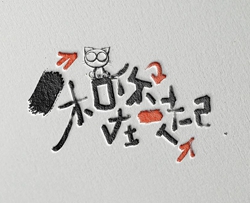 和你在一起